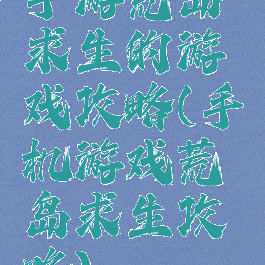 手游荒岛
求生的游
戏攻略(手
机游戏荒
岛求生攻
略)